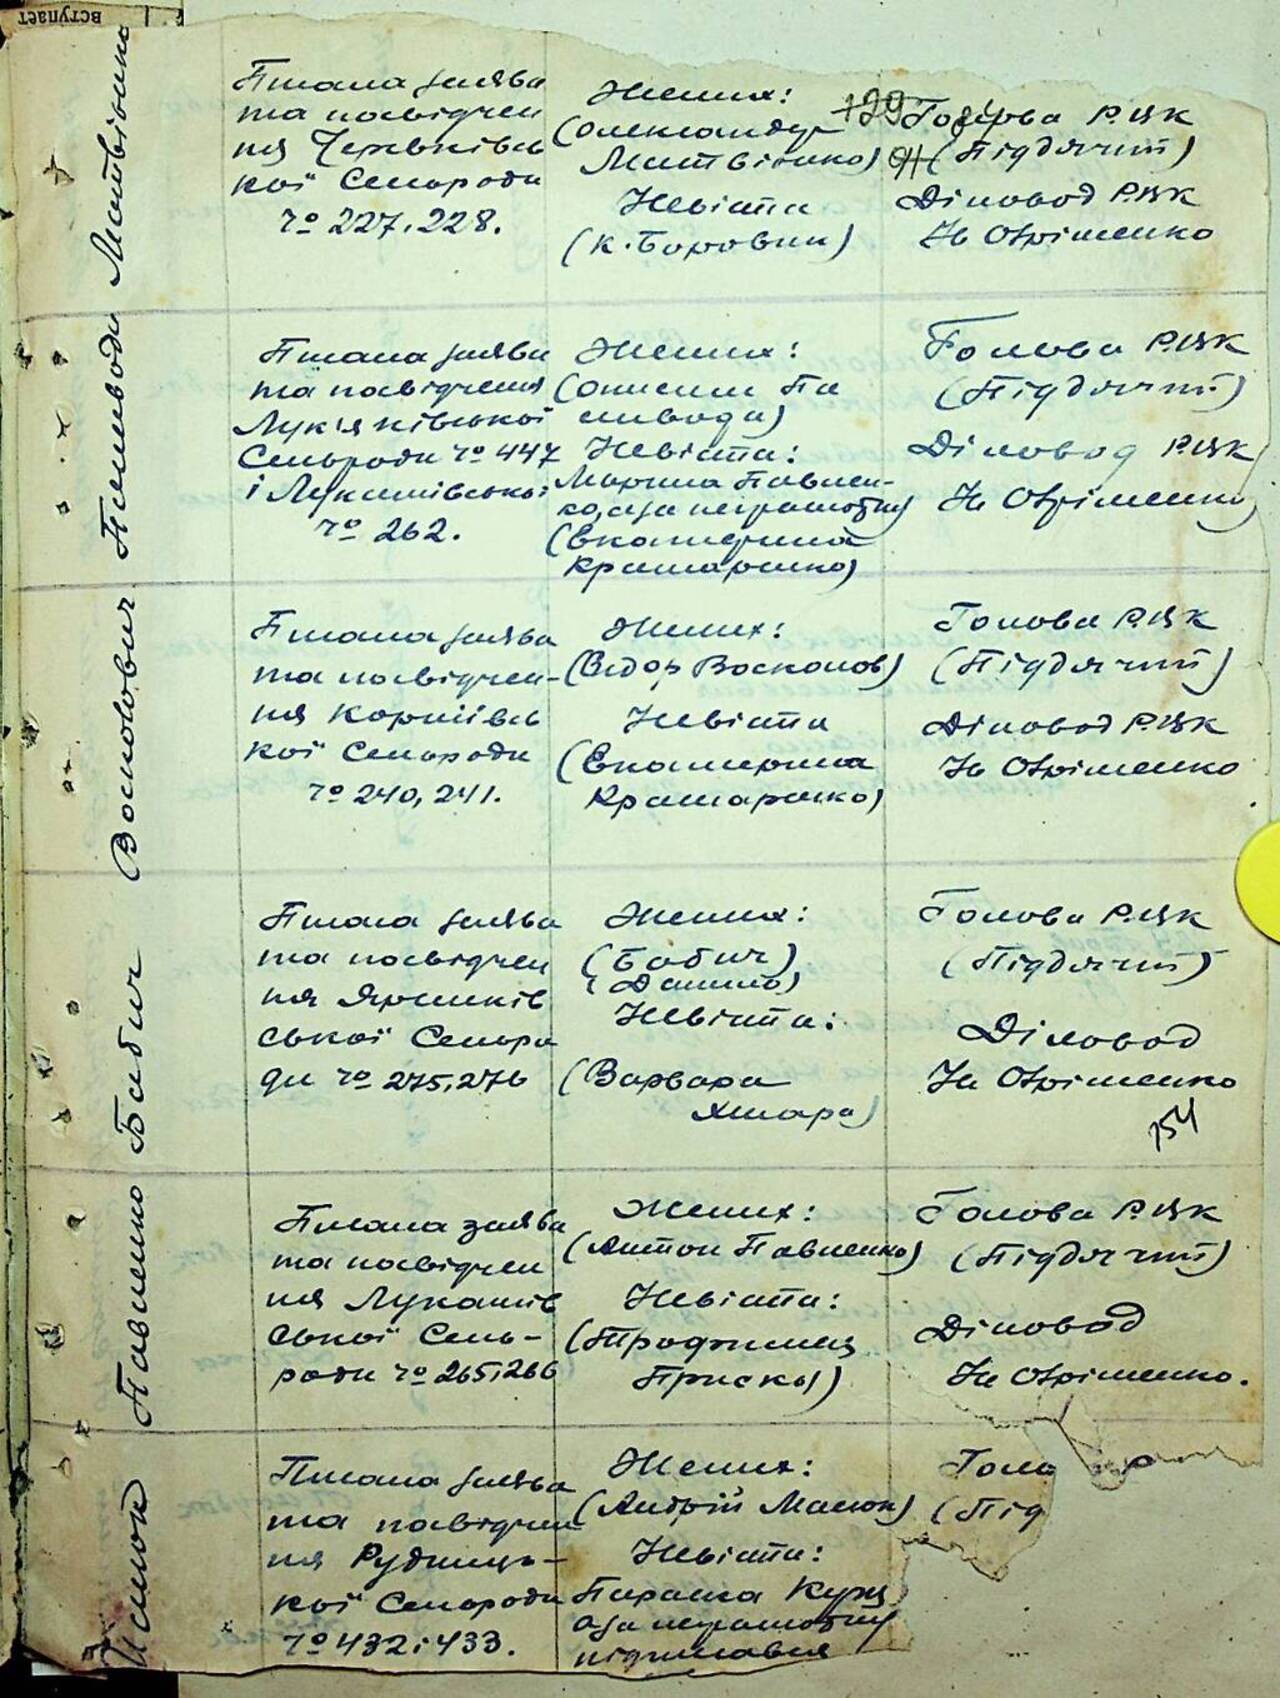 вступает
Матвієнко
Писана заява
та посвідчен
ня Черевківсь
кої Сельради
№ 227, 228.
Жених:
(Олександр
Матвієнко)
Невіста
(К. Боровик)
129
Голова Р.ЦК
(Піддячий)
Діловод Р.ЦК
Ів Охріменко
Писана заява
та посвідчення
Лук'янківської
Сельради № 447
і Лукашівської
№ 262.
Жених:
Невіста:
Марина Павлен-
ко, а за неграмотну
(Екатерина
Крамаренко)
Голова Р.ЦК
(Піддячий)
Діловод Р.ЦК
Ів Охріменко
Писана заява
та посвідчен-
ня Корніївсь
кої Сельради
№ 240, 241.
Жених:
Невіста
(Екатерина
Крамаренко)
Голова Р.ЦК
(Піддячий)
Діловод Р.ЦК
Ів Охріменко
Бабич
Писана заява
та посвідчен
ня Яришків
ської Сельра
ди № 275, 276
Жених:
(Бабич)
(Данило)
Невіста:
(Варвара
Голова Р.ЦК
(Піддячий)
Діловод
Ів Охріменко
154
Павленко
Писана заява
та посвідчен
ня Лукашів
ської Сель-
ради № 265, 266
Жених:
(Антон Павленко)
Невіста:
(Трофимец
Приска)
Голова Р.ЦК
(Піддячий)
Діловод
Ів Охріменко.
Писана заява
та посвідчен
ня Рудниць-
кої Сельради
№ 432 і 433.
Жених:
(Андрій Малюк)
Невіста:
Параска Куц
а за неграмотну
підписався
Голо
(Під